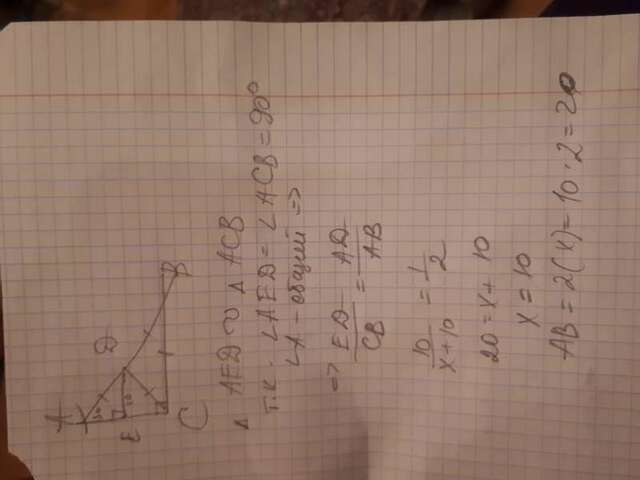 A
D
B
E
C
30
10
Δ AED ∾ Δ ACB
т.к. ∠AED = ∠ACB = 90°
∠A - общий =>
=> ED/CB = AD/AB
10/x+10 = 1/2
20 = x + 10
x = 10
AB = 2(x) = 10 · 2 = 20